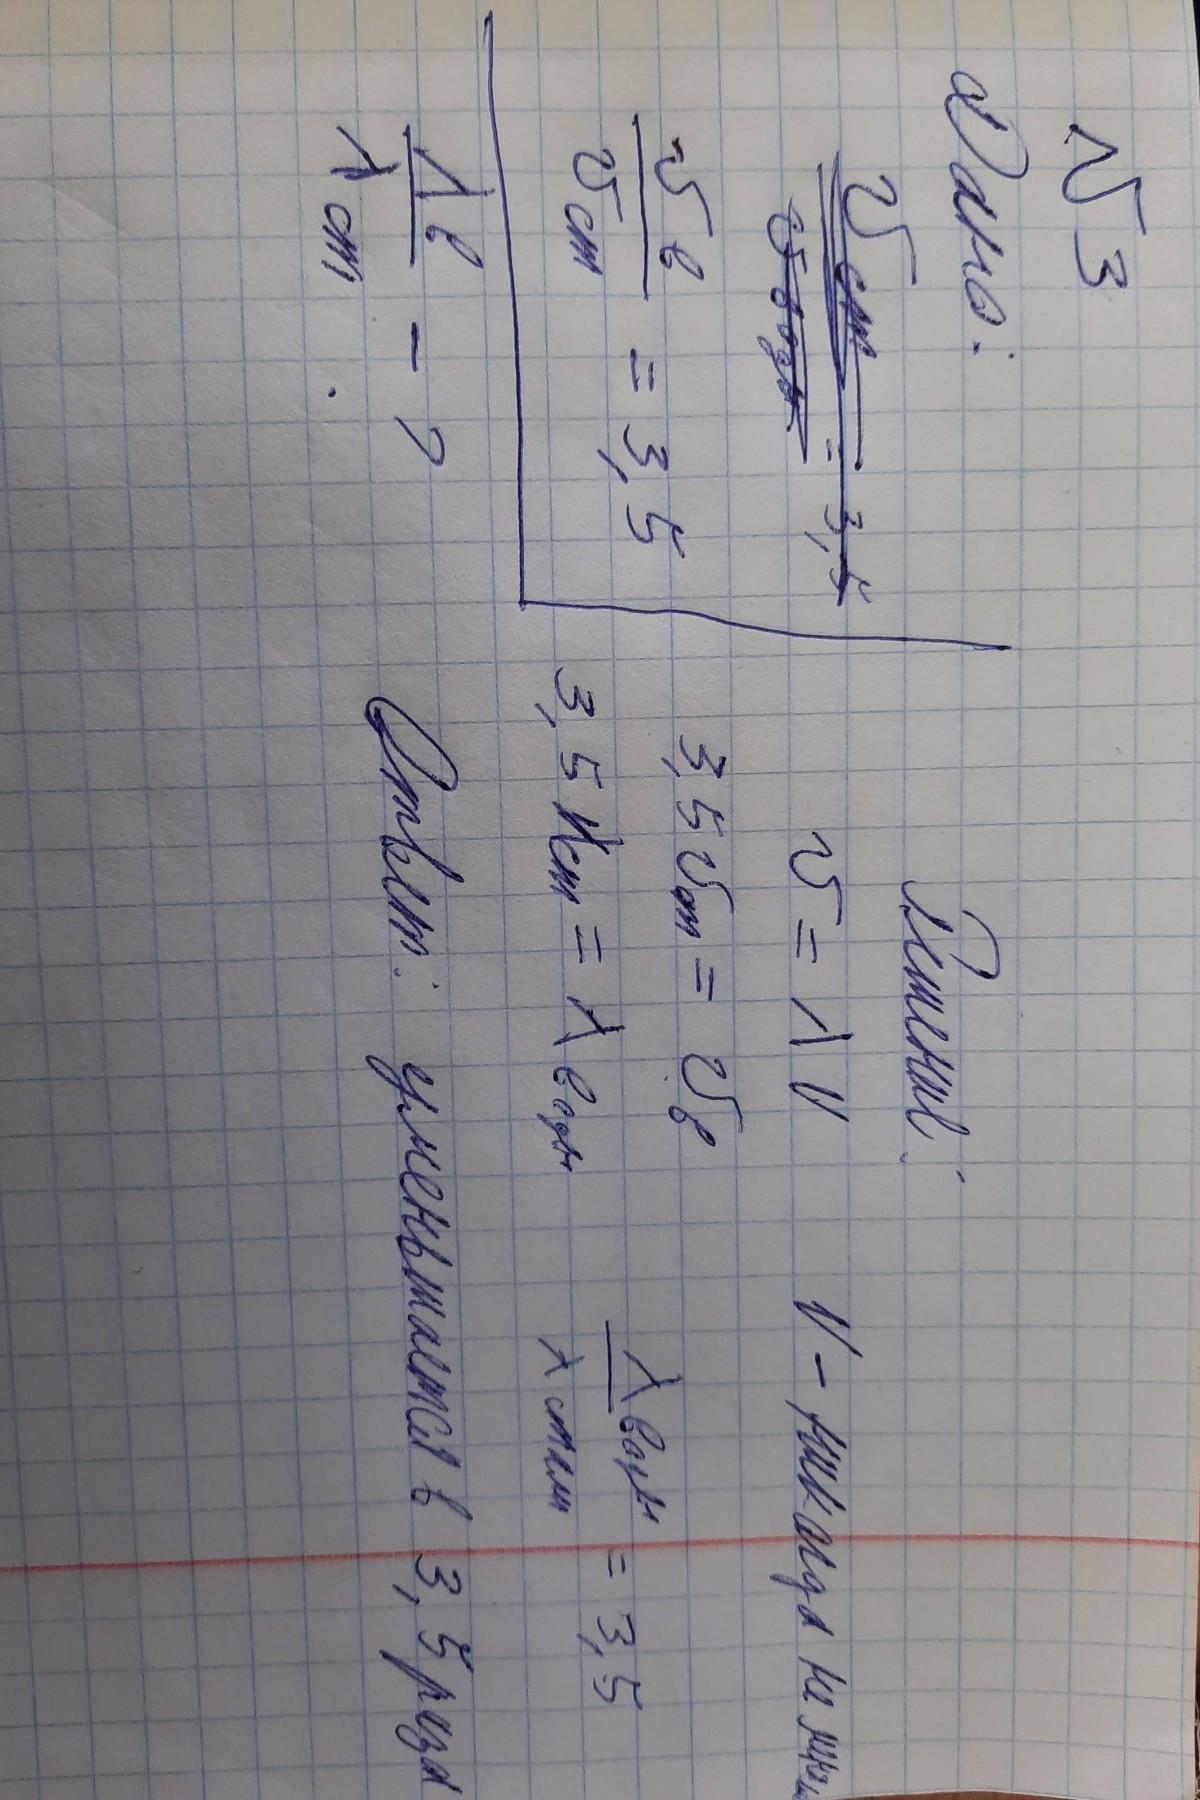 №3
Дано:
υст/υводы = 3,5
υв/υст = 3,5
λв/λст - ?
Решение:
υ = λν ν - никогда не
3,5υст = υв
3,5λст = λводы λводы/λстали = 3,5
Ответ: уменьшается в 3,5 раза